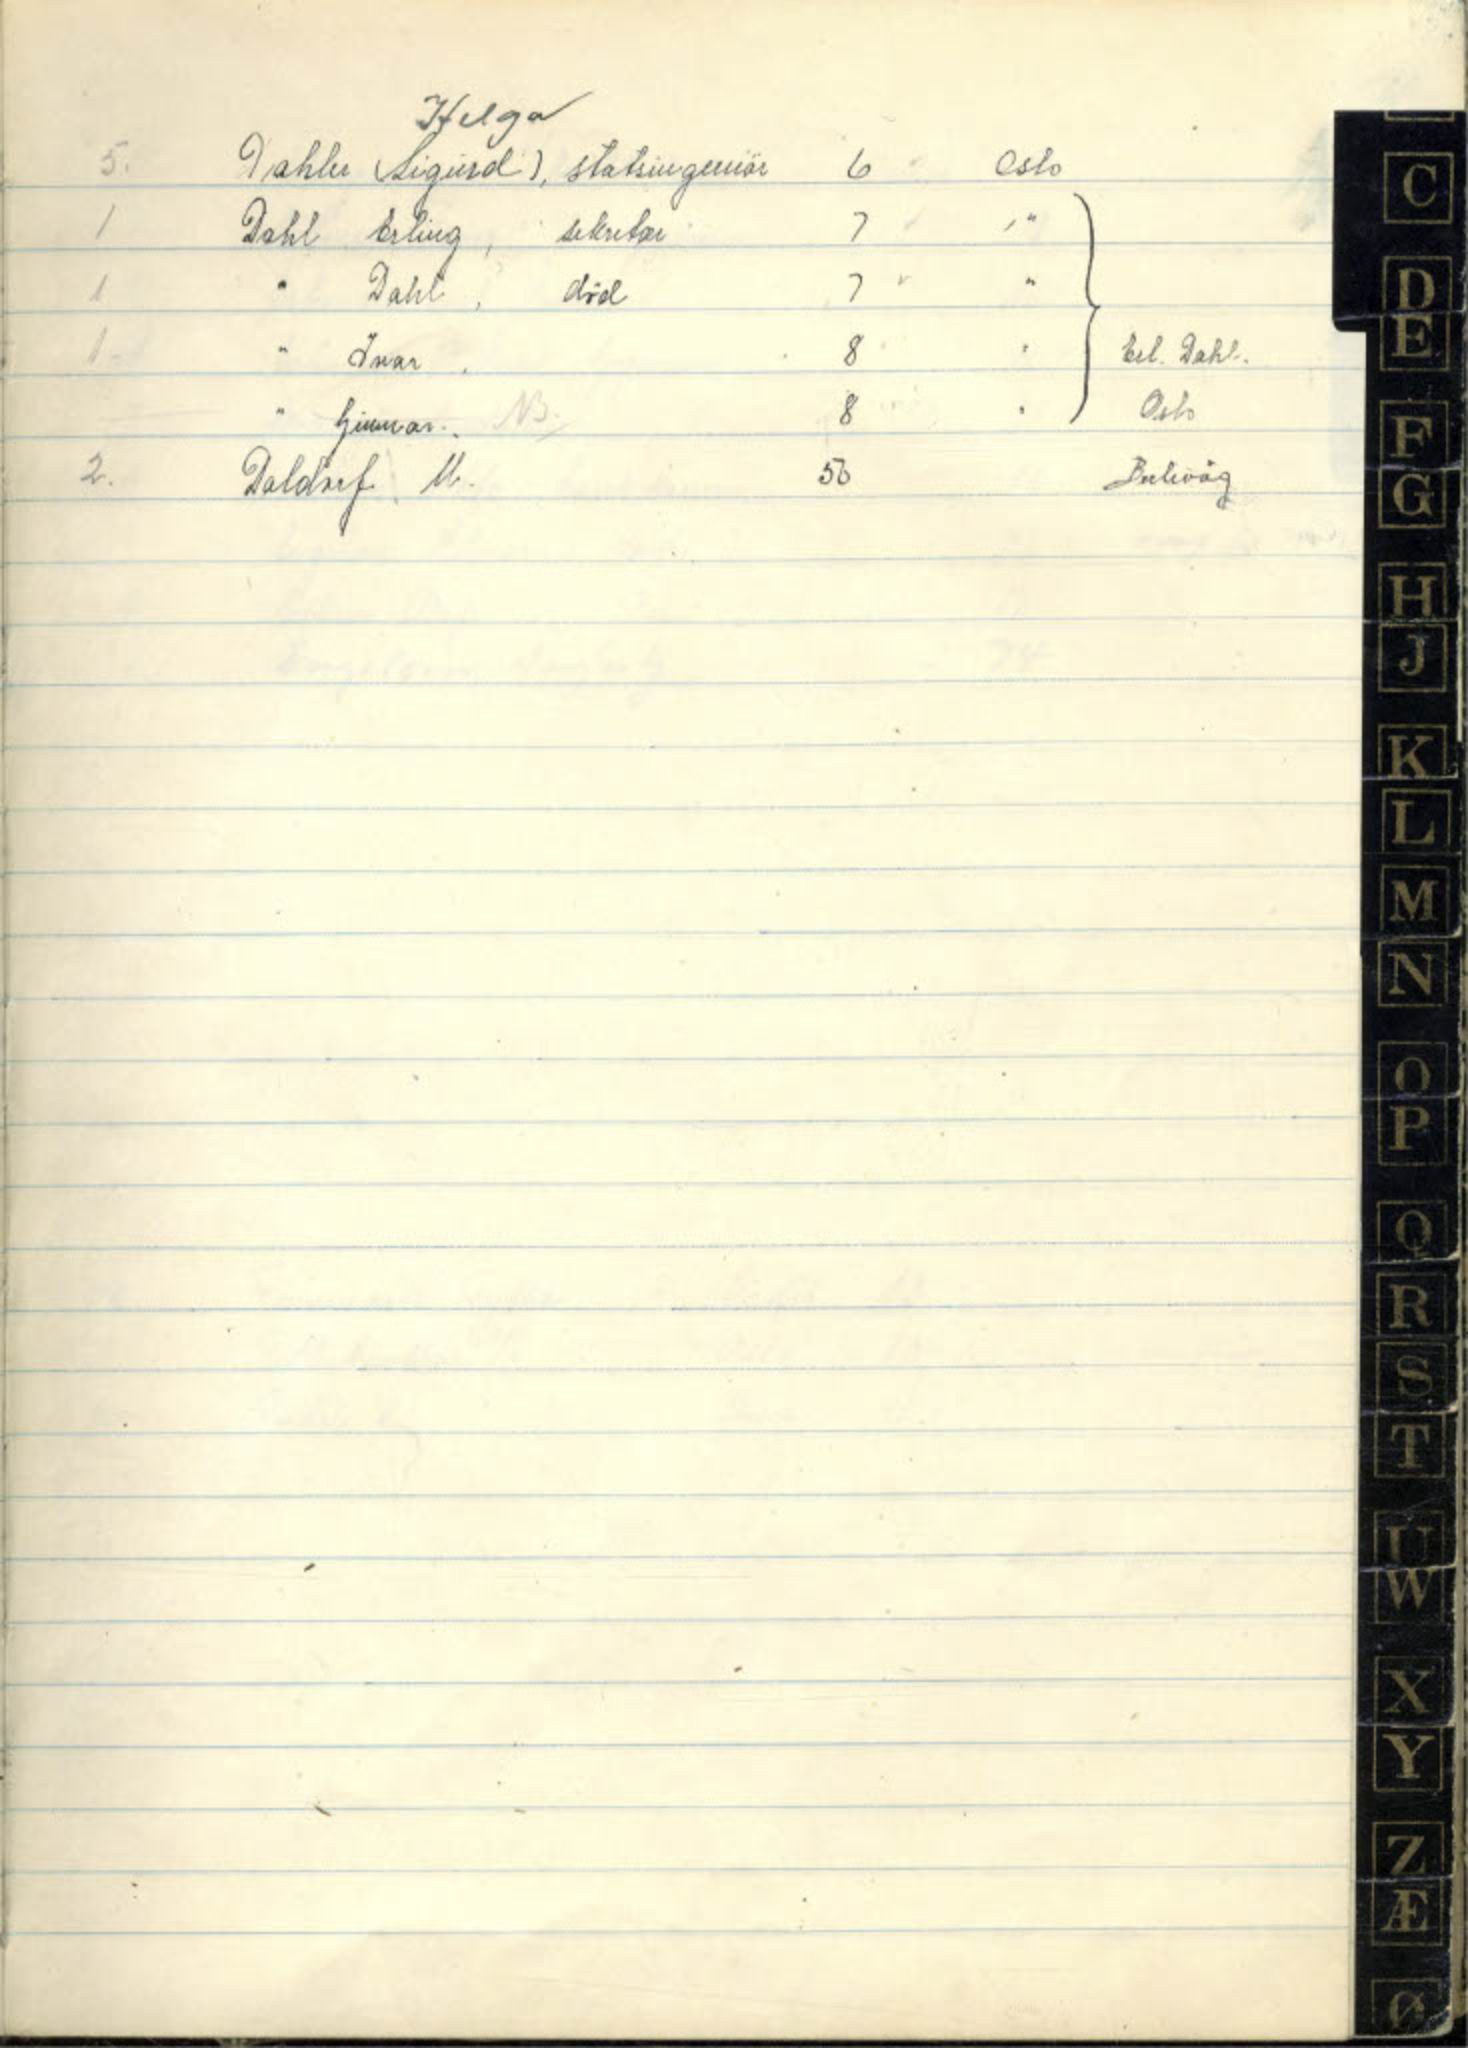 Helga
5. Dahler (Sigurd), statsingeniør 6 Oslo
1 Dahl Erling, sekretær 7 "
1 " Dahl, død 7 "
1 " Ivar, 8 " Erl. Dahl.
" Gunnar. NB. 8 " Oslo
2. Daldorf M. 56
C
D
E
F
G
H
J
K
L
M
N
O
P
Q
R
S
T
U
W
X
Y
Z
Æ
Ø